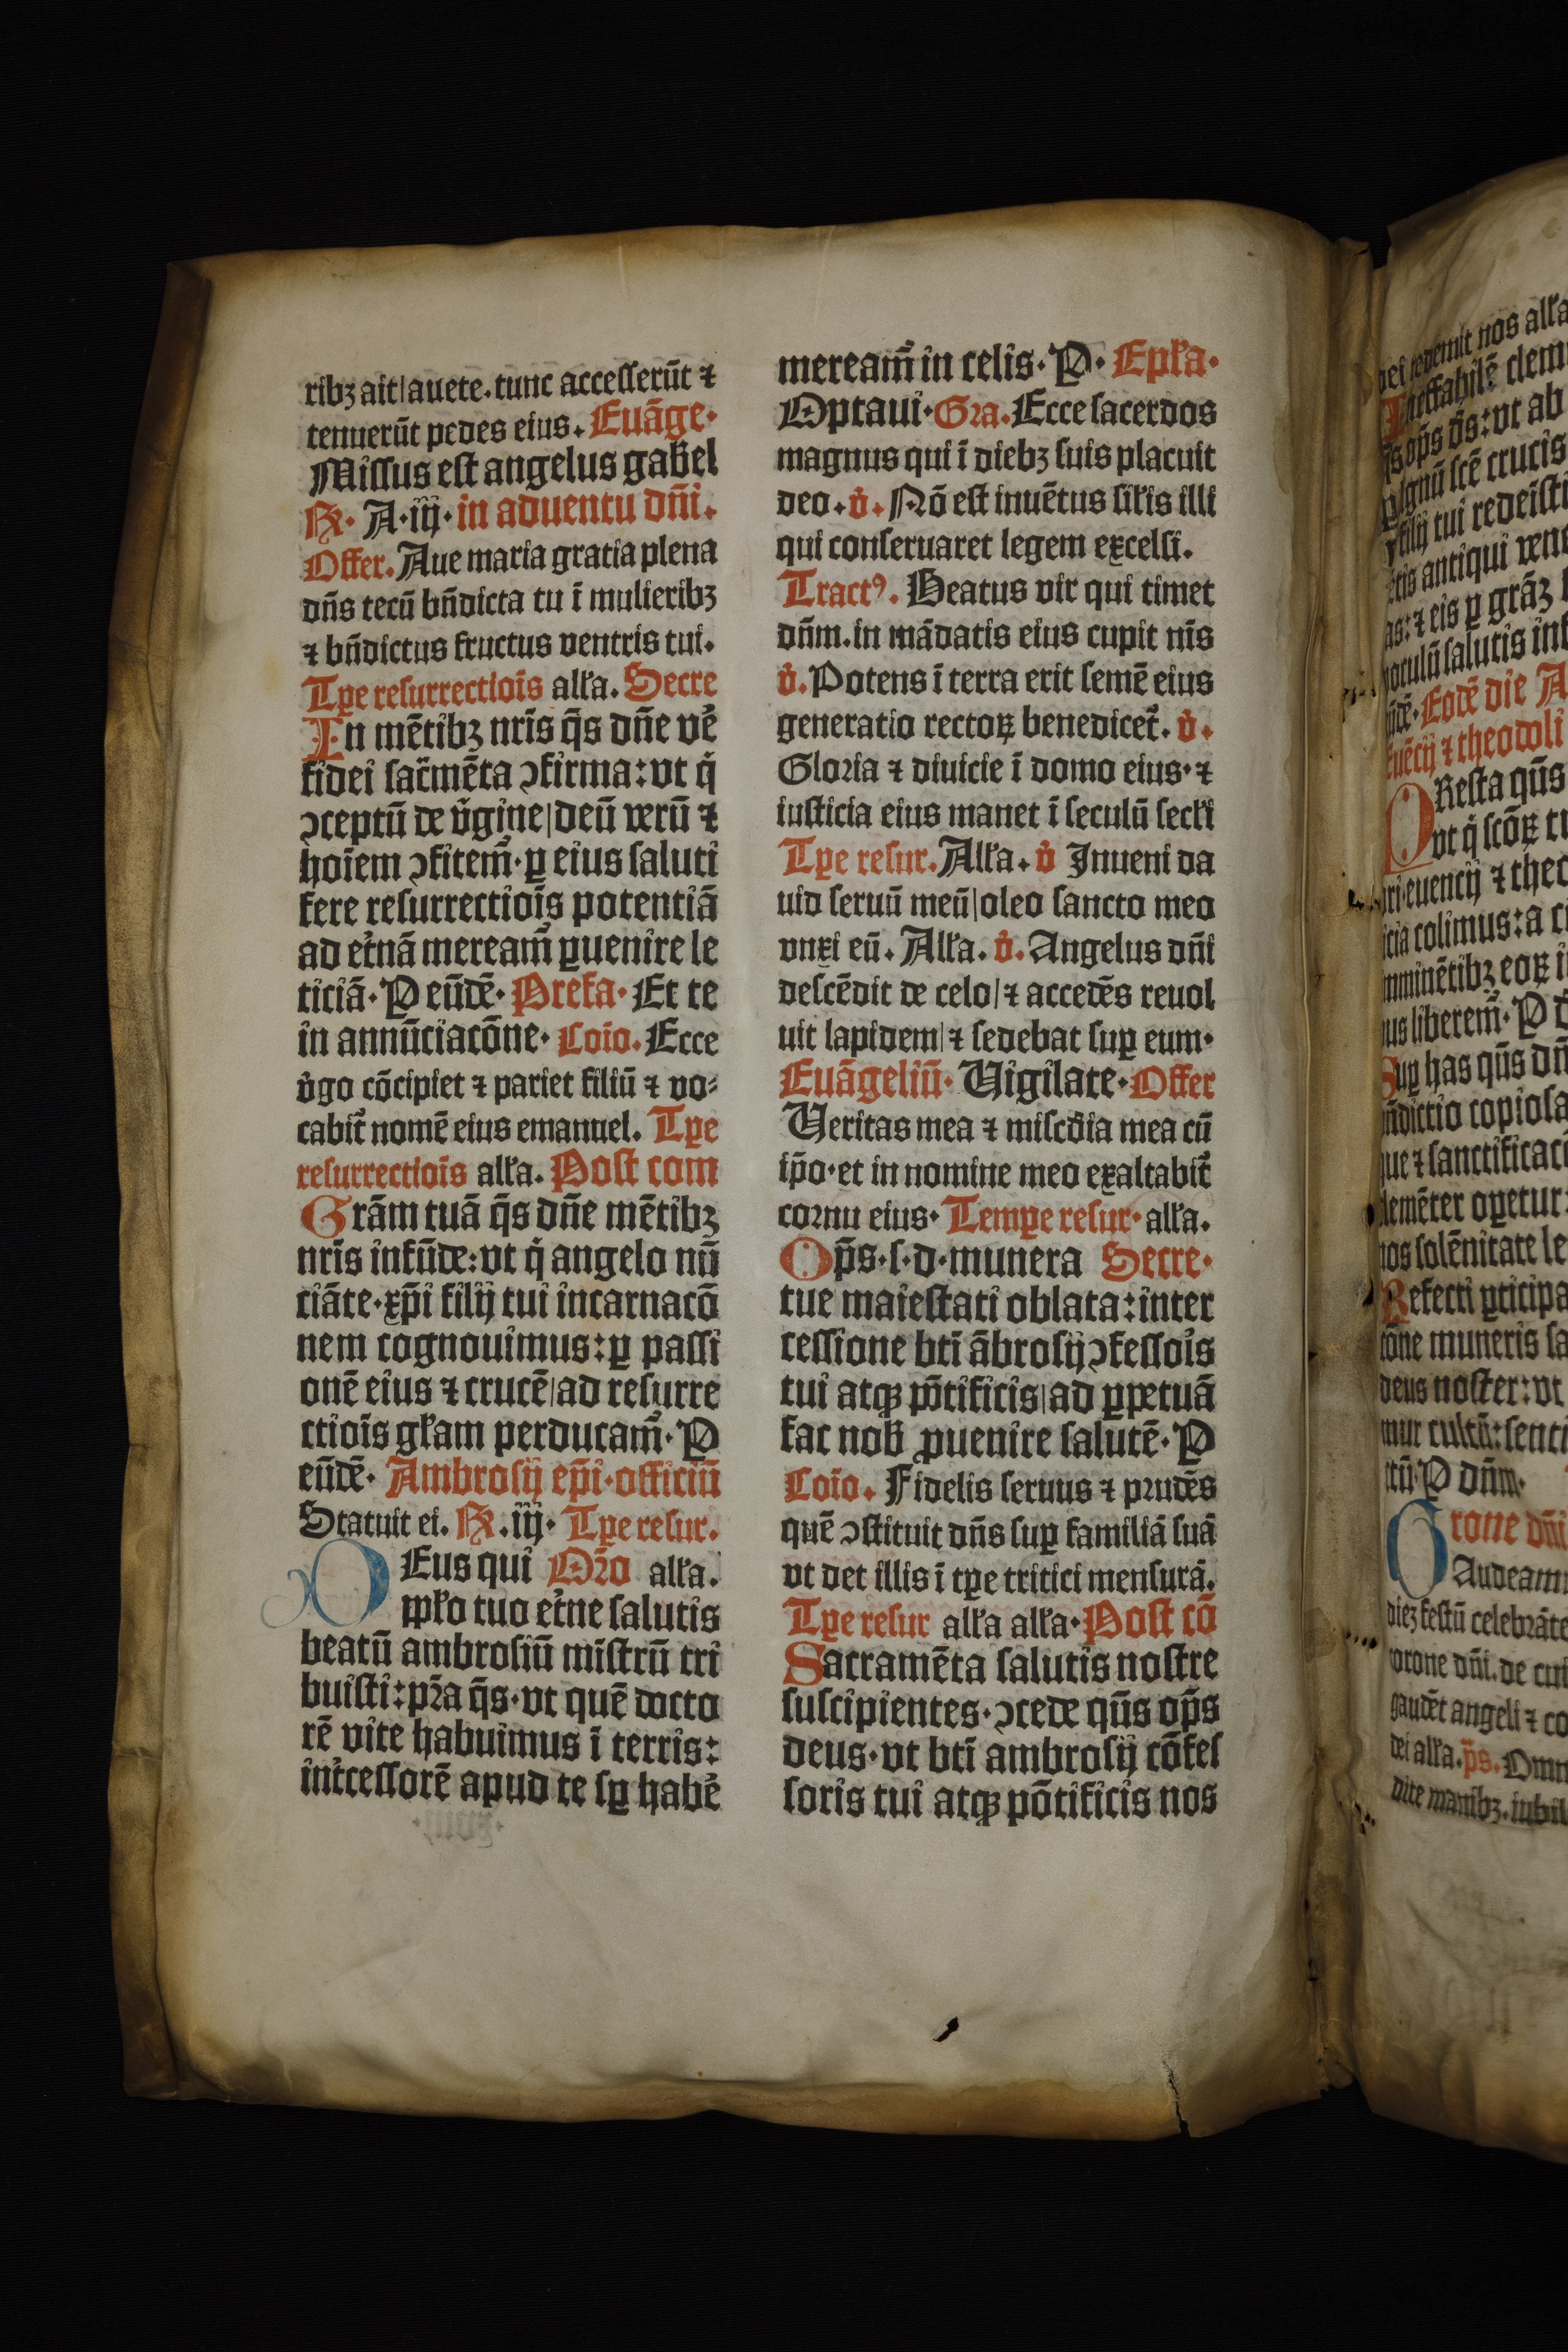 ribꝫ ait|auete. tunc accesserūt ⁊
tenuerūt pedes eius. Euāge·
Missus est angelus gab̄el
℞· A·iij· in aduentu dn̄i.
Offer. Aue maria gratia plena
dn̄s tecū bn̄dicta tu ī mulieribꝫ
⁊ bn̄dictus fructus ventris tui.
Tꝑe resurrectiōis alła. Secre
In mētibꝫ nr̄is q̄s dn̄e ve᷑
fidei sacr̄mēta ↄfirma: vt q̇
ↄceptū de v̇gine|deū verū ⁊
hoīem ↄfitem᷑· ꝑ eius saluti
fere resurrectiōis potentiā
ad et᷑nā meream᷑ ꝑuenire le
ticiā· P eūdē· Prefa· Et te
in annūciacōne· Coīo. Ecce
v̇go cōcipiet ⁊ pariet filiū ⁊ vo⸗
cabit᷑ nomē eius emanuel. Tꝑe
resurrectiōis alła. Post com
Grām tuā q̄s dn̄e mētibꝫ
nr̄is infūde: vt q̇ angelo nū
ciāte· xp̄i filij tui incarnacō
nem cognouimus: ꝑ passi
onē eius ⁊ crucē|ad resurre
ctiōis głam perducam᷑· P
eūdē· Ambrosij ep̄i·officiū
Statuit ei. ℞.iij· Tꝑe resur.
DEus qui Or̄o alła.
ppło tuo et᷑ne salutis
beatū ambrosiū mīstrū tri
buisti: pr̄a q̄s· vt quē docto
rē vite habuimus ī terris:
int᷑cessorē apud te sꝑ habe᷑
meream᷑ in celis· P· Epła·
Optaui· Gra. Ecce sacerdos
magnus qui ī diebꝫ suis placuit
deo. v̇. Nō est inuētus siłis illi
qui conseruaret legem excelsi.
Tractꝰ. Beatus vir qui timet
dn̄m. in mādatis eius cupit nīs
v̇. Potens ī terra erit semē eius
generatio rectoꝝ benedicet᷑. v̇.
Gloria ⁊ diuicie ī domo eius· ⁊
iusticia eius manet ī seculū secłi
Tꝑe resur. Alła. v̇ Inueni da
uid seruū meū|oleo sancto meo
vnxi eū. Alła. v̇. Angelus dn̄i
descēdit de celo|⁊ accedēs reuol
uit lapidem|⁊ sedebat suꝑ eum·
Euāgeliū· Vigilate· Offer
Veritas mea ⁊ misc̄dia mea cū
ip̄o· et in nomine meo exaltabit᷑
cornu eius· Tempe resur· alła.
Op̄s·s·d·munera Secre·
tue maiestati oblata: inter
cessione bt̄i ābrosij ↄfessois
tui atqꝫ pōtificis|ad ꝑpetuā
fac nob̄ ꝓuenire salutē· P
Coīo. Fidelis seruus ⁊ prudēs
quē ↄstituit dn̄s suꝑ familiā suā
vt det illis ī tꝑe tritici mensurā.
Tꝑe resur alła alła· Post cō
Sacramēta salutis nostre
suscipientes· ↄcede qūs op̄s
deus· vt bt̄i ambrosij cōfes
soris tui atqꝫ pōtificis nos
nos alła
Ineffabilē clem
vt ab
sc̄e crucis
filij tui redeīsti
antiqui vene
⁊ eis ꝑ grāꝫ
salutis inf
Eodē die A
⁊ theodoli
PResta qūs
vt q̇ scōꝝ
euencij ⁊ theo
colimus: a
imminētibꝫ eoꝝ
liberem᷑· P
Suꝑ has qūs dn̄
copiosa
⁊ sanctificaci
opetur:
solēnitate le
Refecti ꝑticipa
cōne muneris sa
deus noster: vt
mur cultū: senti
P dn̄m·
COrone dn̄i
Audeam
diē festū celebrāte
corone dn̄i. de cui
gaudēt angeli ⁊ co
dei alła. p̄s. Omn
dite manibꝫ. iubil